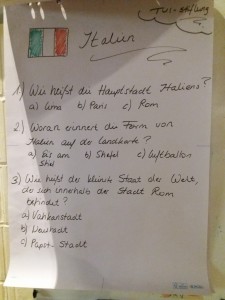 Italien
1) Wie heißt die Hauptstadt Italiens?
a) Lima b) Paris c) Rom
2) Woran erinnert die Form von
Italien auf der Landkarte?
a) Eis am b) Stiefel c) Luftballon
Stiel
3) Wie heißt der kleinste Staat der Welt,
der sich innerhalb der Stadt Rom
befindet?
a) Vatikanstadt
b) Neustadt
c) Papst-Stadt